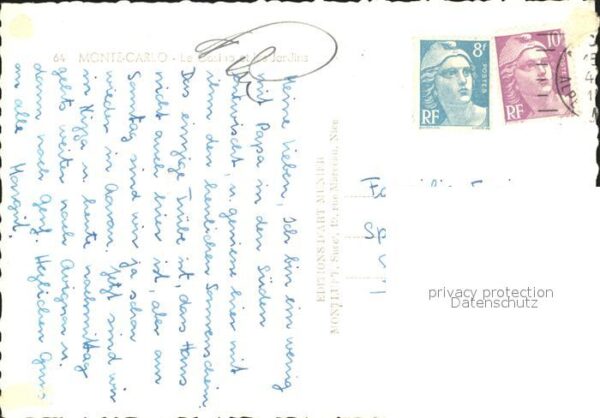 64 MONTE-CARLO - Le Casino et les Jardins
Meine Lieben, Ich bin ein wenig
mit Papa in den Süden
entwischt, u. geniesse hier mit
ihm den herrlichen Sonnenschein.
Das einzige Trübe ist, dass Hans
nicht auch hier ist, aber am
Sonntag sind wir ja schon
wieder in Aarau. Jetzt sind wir
in Nizza u. heute nachmittag
gehts weiter nach Avignon u.
dann noch Genf. Herzlichen Gruss
an alle Margrit.
EDITIONS D'ART MUNIER
MONTLUET, Succr, 12, rue Marceau, Nice
8f
POSTES
RF
10f
RF
privacy protection
Datenschutz